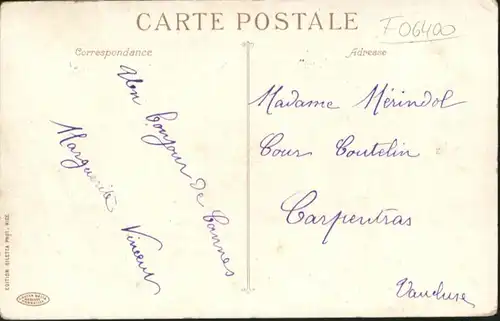 CARTE POSTALE
F 06400
Correspondance
Adresse
Un Bonjour de Cannes
Marguerite Vincent
Madame Mérindol
Cour
Carpentras
Vaucluse
EDITION GILETTA PHOT. NICE